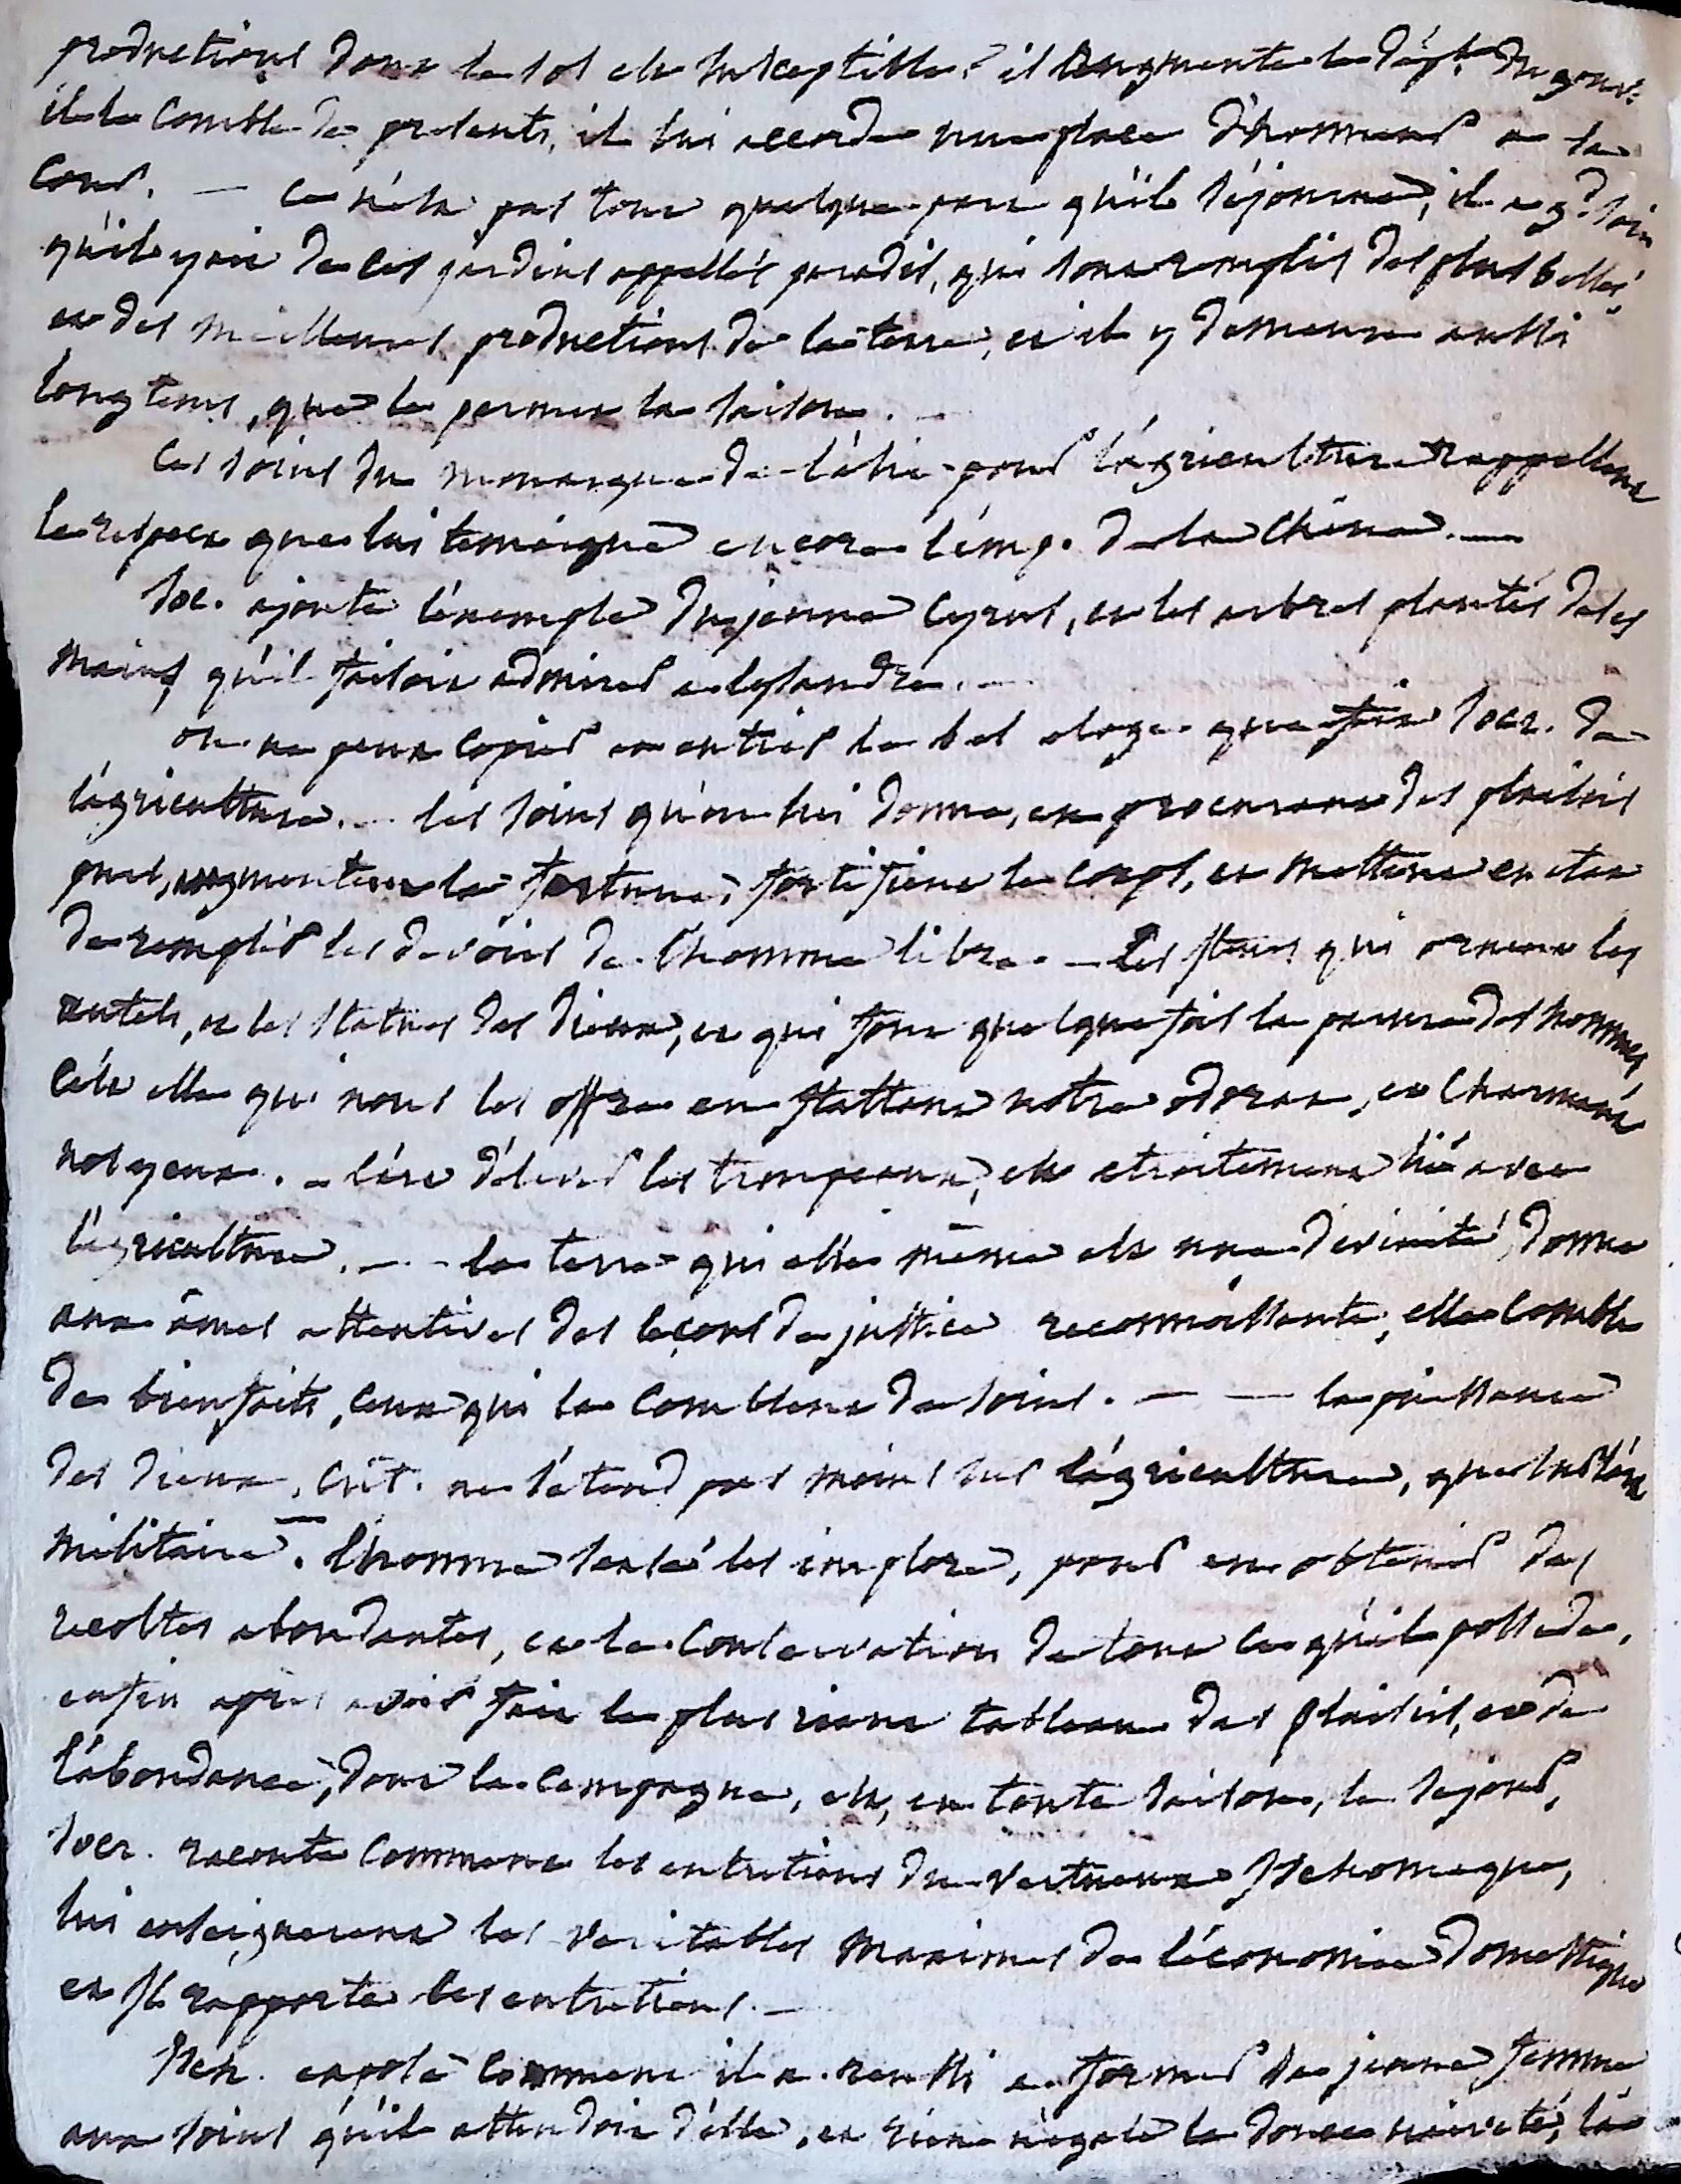 productions dont le sol est susceptible? il augmente le dépt. du gouvr.
il le comble de présents, il lui accorde une place d'honneur a la
cour. — ce n'est pas tout quelque part qu'il séjourne, il a gd. soin
qu'il y ait de ces jardins appellés paradis, qui sont remplis des plus belles,
et des meilleures productions de la terre, et il y demeure aussi
longtems, que le permet la saison. —
ces soins du monarque de l'asie pour l'agriculture rappellent
le respect que lui temoigne encore l'emp. de la Chine. —
soc. ajoute l'exemple du jeune Cyrus, et les arbres plantés de ses
mains, qu'il faisoit admirer a lysandre. —
on ne peut copier en entier le bel eloge que fait socr. de
l'agriculture. — les soins qu'on lui donne, en procurant des plaisirs
purs, augmentent la fortune, fortifient le corps, et mettent en etat
de remplir les devoirs de l'homme libre. — Les fleurs qui ornent les
autels, et les statues des dieux, et qui font quelquefois la parure des hommes,
c'est elle qui nous les offre en flattant notre odorat, et charmant
nos yeux. — l'art d'elever les troupeaux, est etroitement lié avec
l'agriculture. — la terre qui elle même est une divinité, donne
aux âmes attentives des leçons de justice reconnoissante, elle comble
de bienfaits, ceux qui la comblent de soins. — — la puissance
des dieux, crit. ne s'etend pas moins sur l'agriculture, que sur l'art
militaire. l'homme sensé les implore, pour en obtenir des
recoltes abondantes, et la conservation de tout ce qu'il possede.
enfin après avoir fait le plus riant tableau des plaisirs, et de
l'abondance, dont la campagne, est, en toute saison, le sejour,
socr. raconte comment les entretiens du vertueux Ischomaque,
lui enseignerent les veritables maximes de l'économie domestique
et il rapporte ces entretiens. —
Isch. expose comment il a reussi a former sa jeune femme
aux soins qu'il attendoit d'elle, et rien n'egale la douce naiveté, la